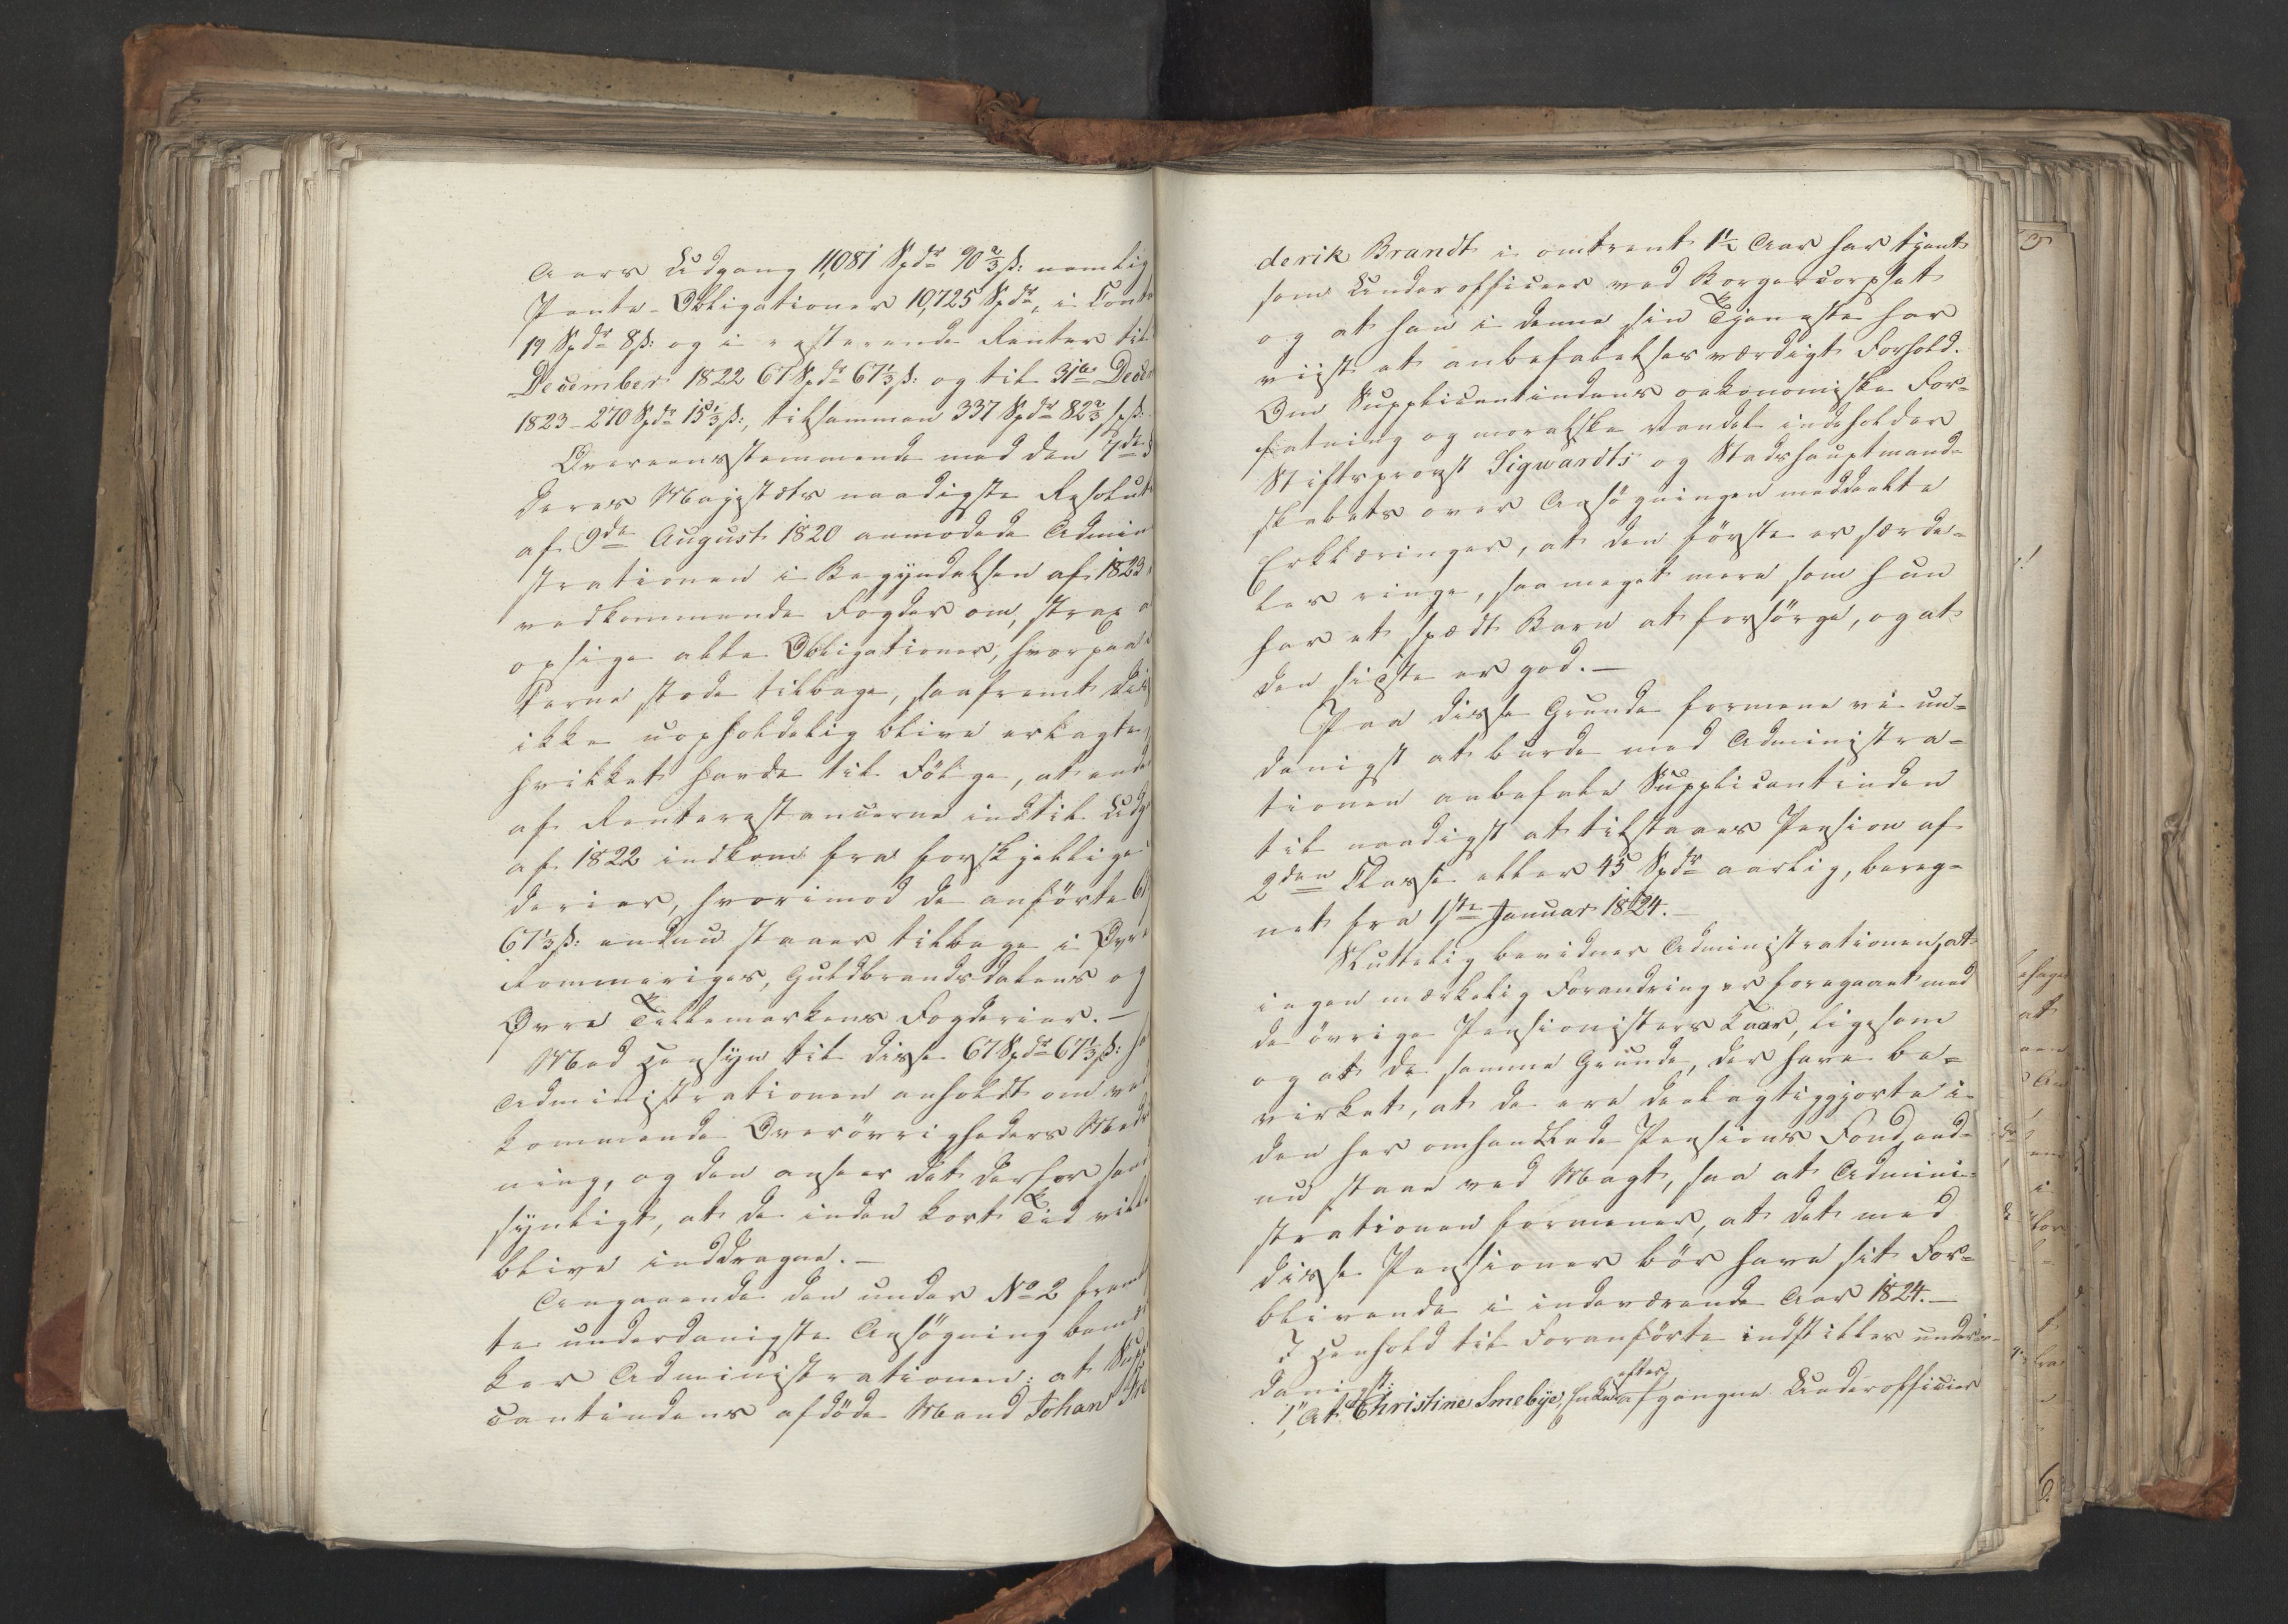 Aars Udgang 11,081 Spdr 90⅔ ß: nemlig
Pante-Obligationer 10,725 Spdr, i Conta
19 Spdr 8 ß: og i resterende Renter til
December 1822 67 Spdr 67⅓ ß: og til 31te Decem
1823 - 270 Spdr 15⅓ ß:, tilsammen 337 Spdr 82⅔ ß:
Overeensstemmende med den 7de
Deres Majestæts naadigste Resoluti
af 9de August 1820 anmodede Admini
strationen i Begyndelsen af 1823
vedkommende Fogder om, strax a
opsige alle Obligationer, hvorpaa
terne stode tilbage, saafremt dis
ikke uopholdelig blive erlagte,
hvilket havde til Følge, at ende
af Renterestancerne indtil Udg
af 1822 indkom fra forskjellige
derier, hvorimod de anførte 67
67⅓ ß: endnu staaer tilbage i Øvre
Rommeriges, Guldbrandsdalens og
Øvre Tellemarkens Fogderier. —
Med Hensyn til disse 67 Spdr 67⅓ ß: ha
Administrationen anholdt om ved
kommende Overøvrigheders Medv
ning, og den anseer det derfor san
synligt, at de inden kort Tid ville
blive inddragne. —
Angaaende den under No 2 frem
te underdanigste Ansøgning bemær
ker Administrationen: at Suppl
cantindens afdøde Mand Johan Fre
derik Brandt i omtrent 1½ Aar har tjent
som Underofficeer ved Borgercorpset
og at han i denne sin Tjeneste har
viist et anbefalelsesværdigt Forhold.
Om Supplicantindens oekonomiske For-
fatning og moralske Vandel indeholder
Stiftsprovst Sigwardts og Stadshauptmand-
skabets over Ansøgningen meddeelte
Erklæringer, at den første er særde-
les ringe, saa meget mere som hun
har et spædt Barn at forsørge, og at
den sidste er god. —
Paa disse Grunde formene vi un-
danigst at burde med Administra-
tionen anbefale Supplicantinden
til naadigst at tilstaaes Pension af
2den Classe eller 45 Spdr aarlig, bereg-
net fra 1ste Januar 1824. —
Sluttelig bevidner Administrationen, at
ingen mærkelig Forandring er foregaaet med
de øvrige Pensionisters Kaar, ligesom
og at de samme Grunde, der have be-
virket, at de ere deelagtiggjorte i
den her omhandlede Pensions Fond, end-
nu staae ved Magt, saa at Admini-
strationen formener, at det med
disse Pensioner bør have sit For-
blivende i indeværende Aar 1824. —
I Henhold til Foranførte indstilles under-
danigst:
1, At Christine Smebye, Enke efter afgangne Underofficier